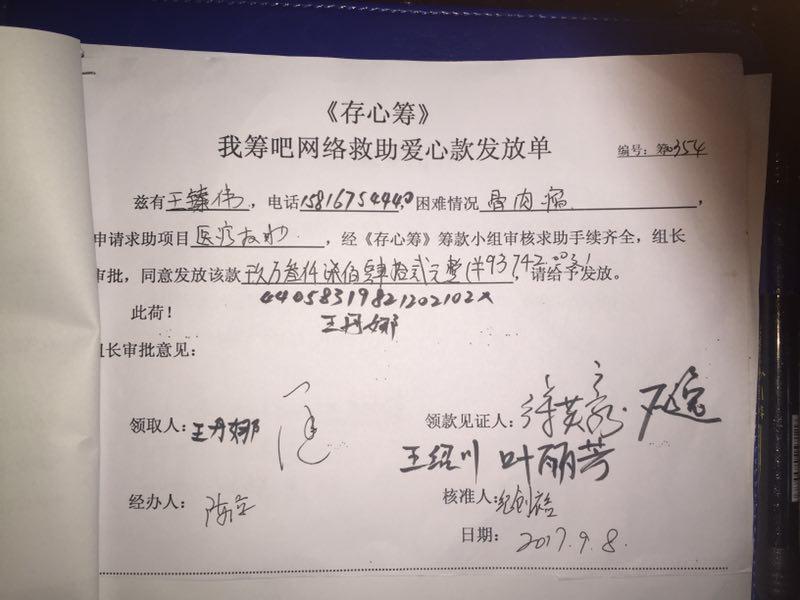 《存心筹》
我筹吧网络救助爱心款发放单
编号：筹0354
兹有王臻伟，电话15816754440，困难情况骨肉瘤，
申请求助项目医疗救助，经《存心筹》筹款小组审核求助手续齐全，组长
审批，同意发放该款玖万叁仟柒佰肆拾贰元整（¥93,742.00元），请给予发放。
44058319821202102X
此荷！
王丹娜
组长审批意见：
领取人：王丹娜
领款见证人：
王绍川 叶丽芳
经办人：
核准人：
日期：2017.9.8.